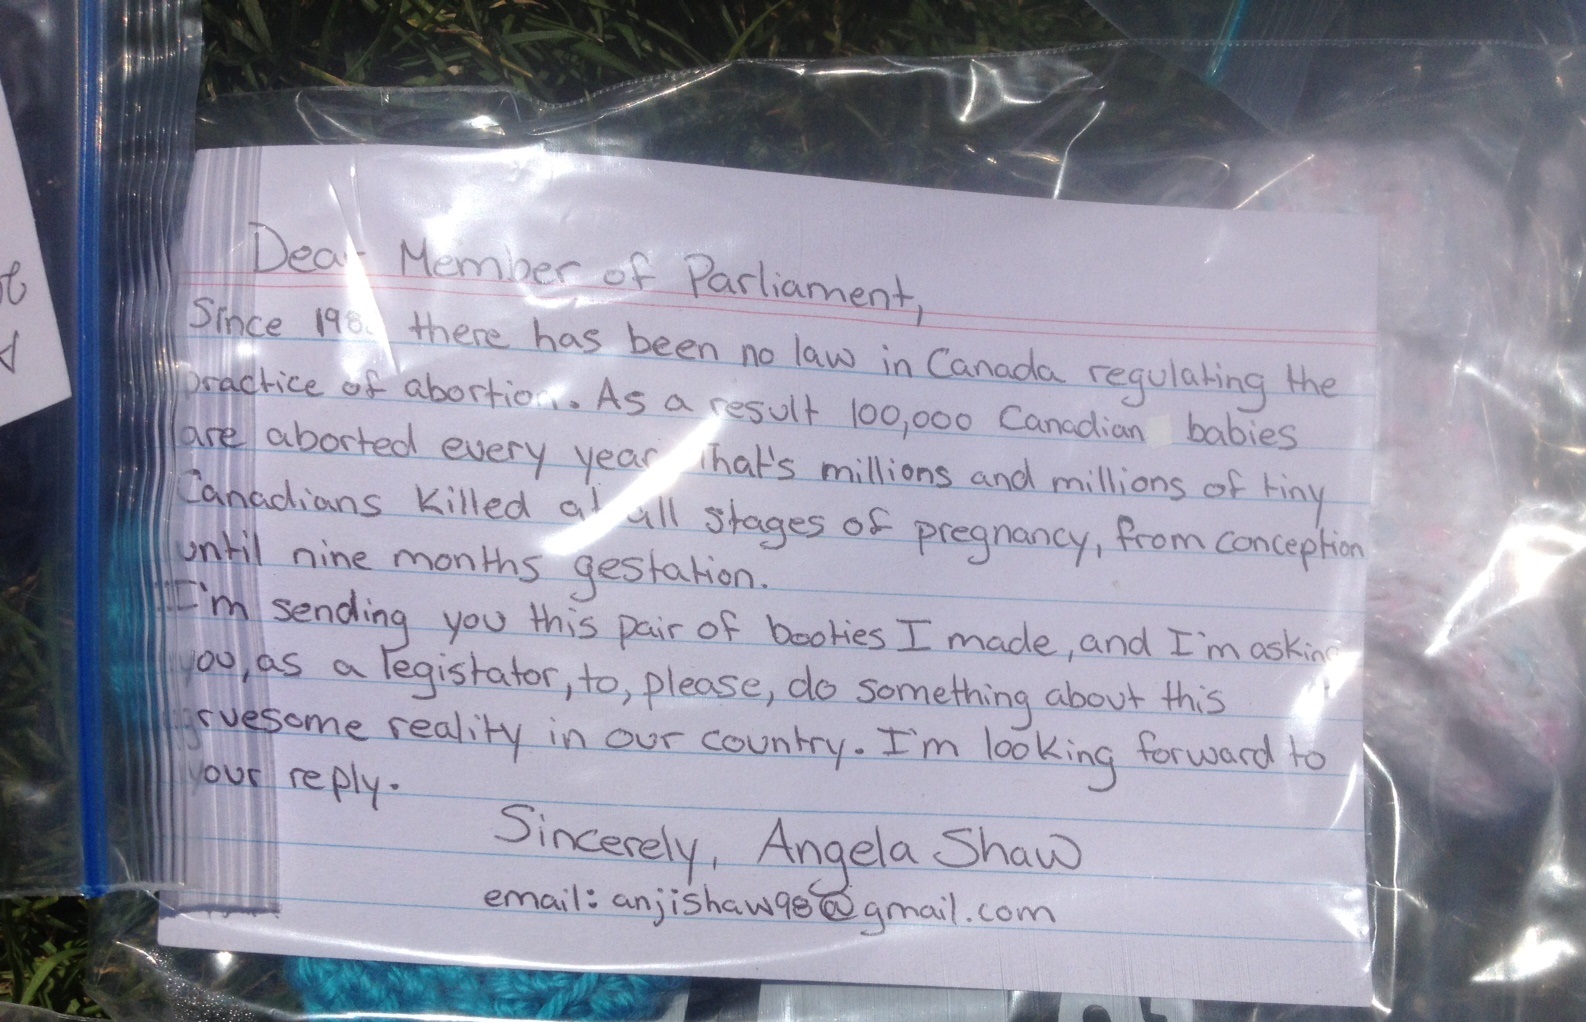 Dear Member of Parliament,
Since there has been no law in Canada regulating the
practice of abortion. As a result 100,000 Canadian babies
are aborted every year. That's millions and millions of tiny
Canadians killed at all stages of pregnancy, from conception
until nine months gestation.
I'm sending you this pair of booties I made, and I'm asking
you, as a legistator, to, please, do something about this
gruesome reality in our country. I'm looking forward to
your reply.
Sincerely, Angela Shaw
email: anjishaw98@gmail.com